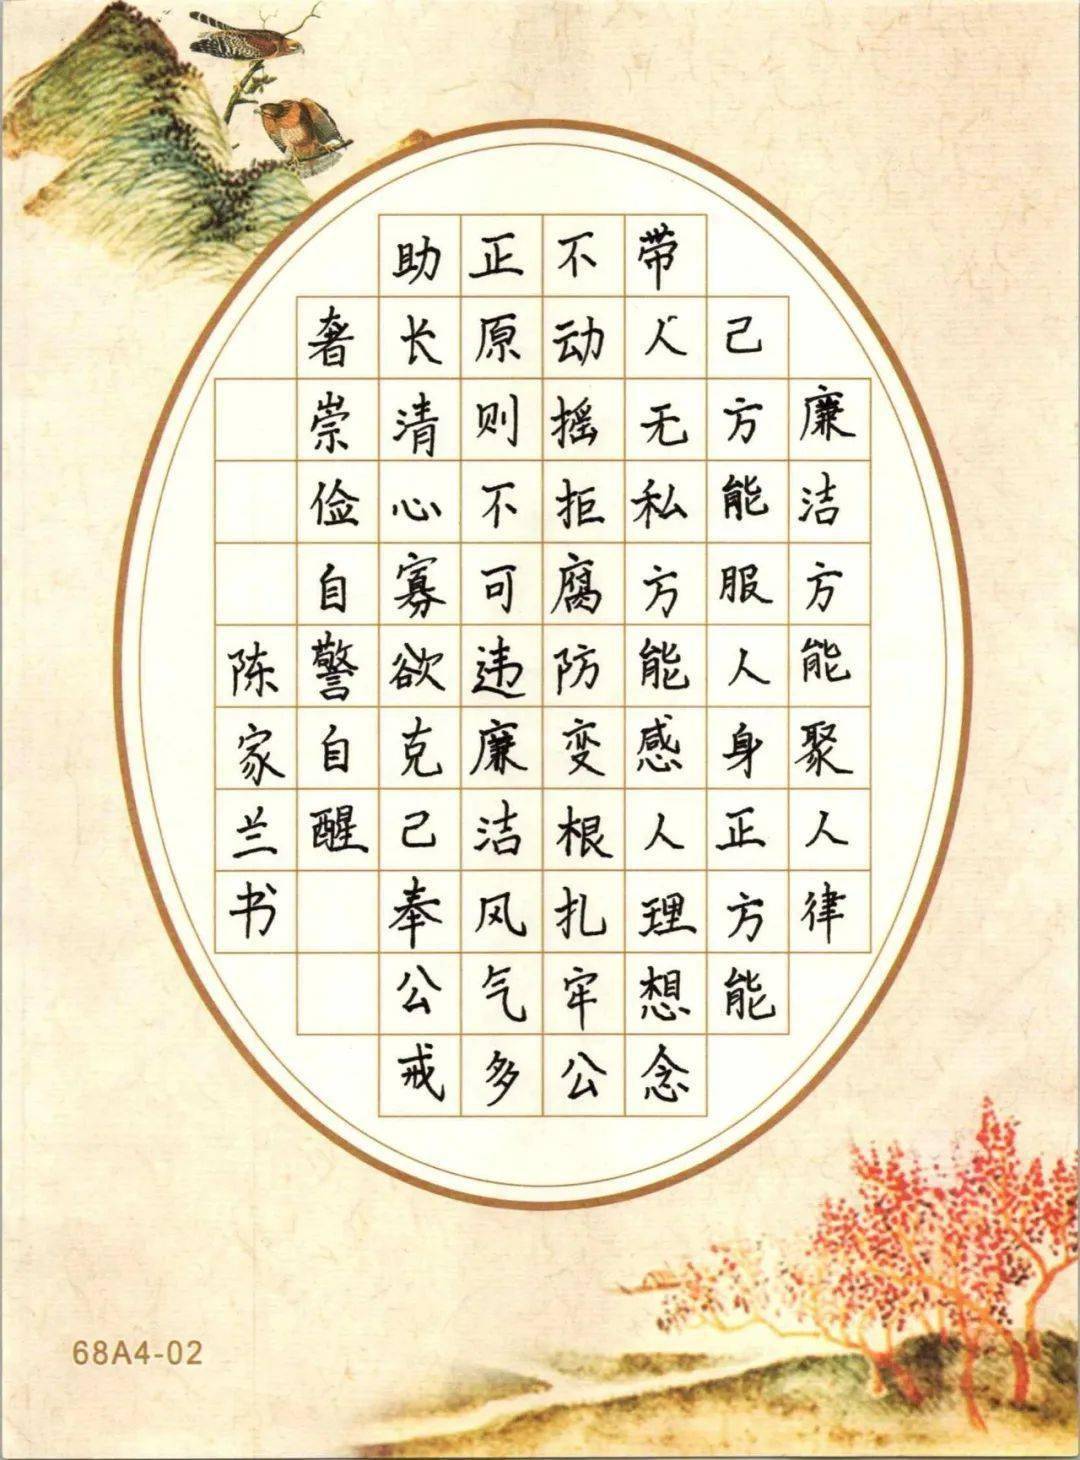 廉洁方能聚人律
己方能服人身正方能
带人无私方能感人理想念
不动摇拒腐防变根扎牢公
正原则不可违廉洁风气多
助长清心寡欲克己奉公戒
奢崇俭自警自醒
陈家兰书
68A4-02